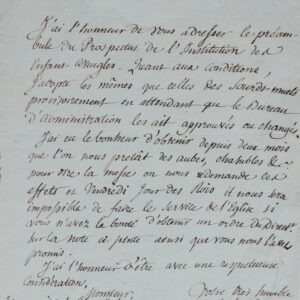 J'ai l'honneur de vous adresser le préam-
bule du Prospectus de l'Institution des
Enfans aveugles. Quant aux conditions,
j'adopte les mêmes que celles des Sourds-muets
provisoirement en attendant que le Bureau
d'administration les ait approuvés ou changés.
J'ai eu le bonheur d'obtenir depuis deux mois
que l'on nous pretât des aubes, chasubles &c
pour dire la messe on nous redemande ces
effets et Vendredi jour des Rois il nous sera
impossible de faire le Service de l'Eglise si
vous n'avez la bonté d'obtenir un ordre du
sur la note ci jointe ainsi que vous nous l'avez
promis.
J'ai l'honneur d'être avec une respectueuse
considération,
Monsieur,
Votre très humble